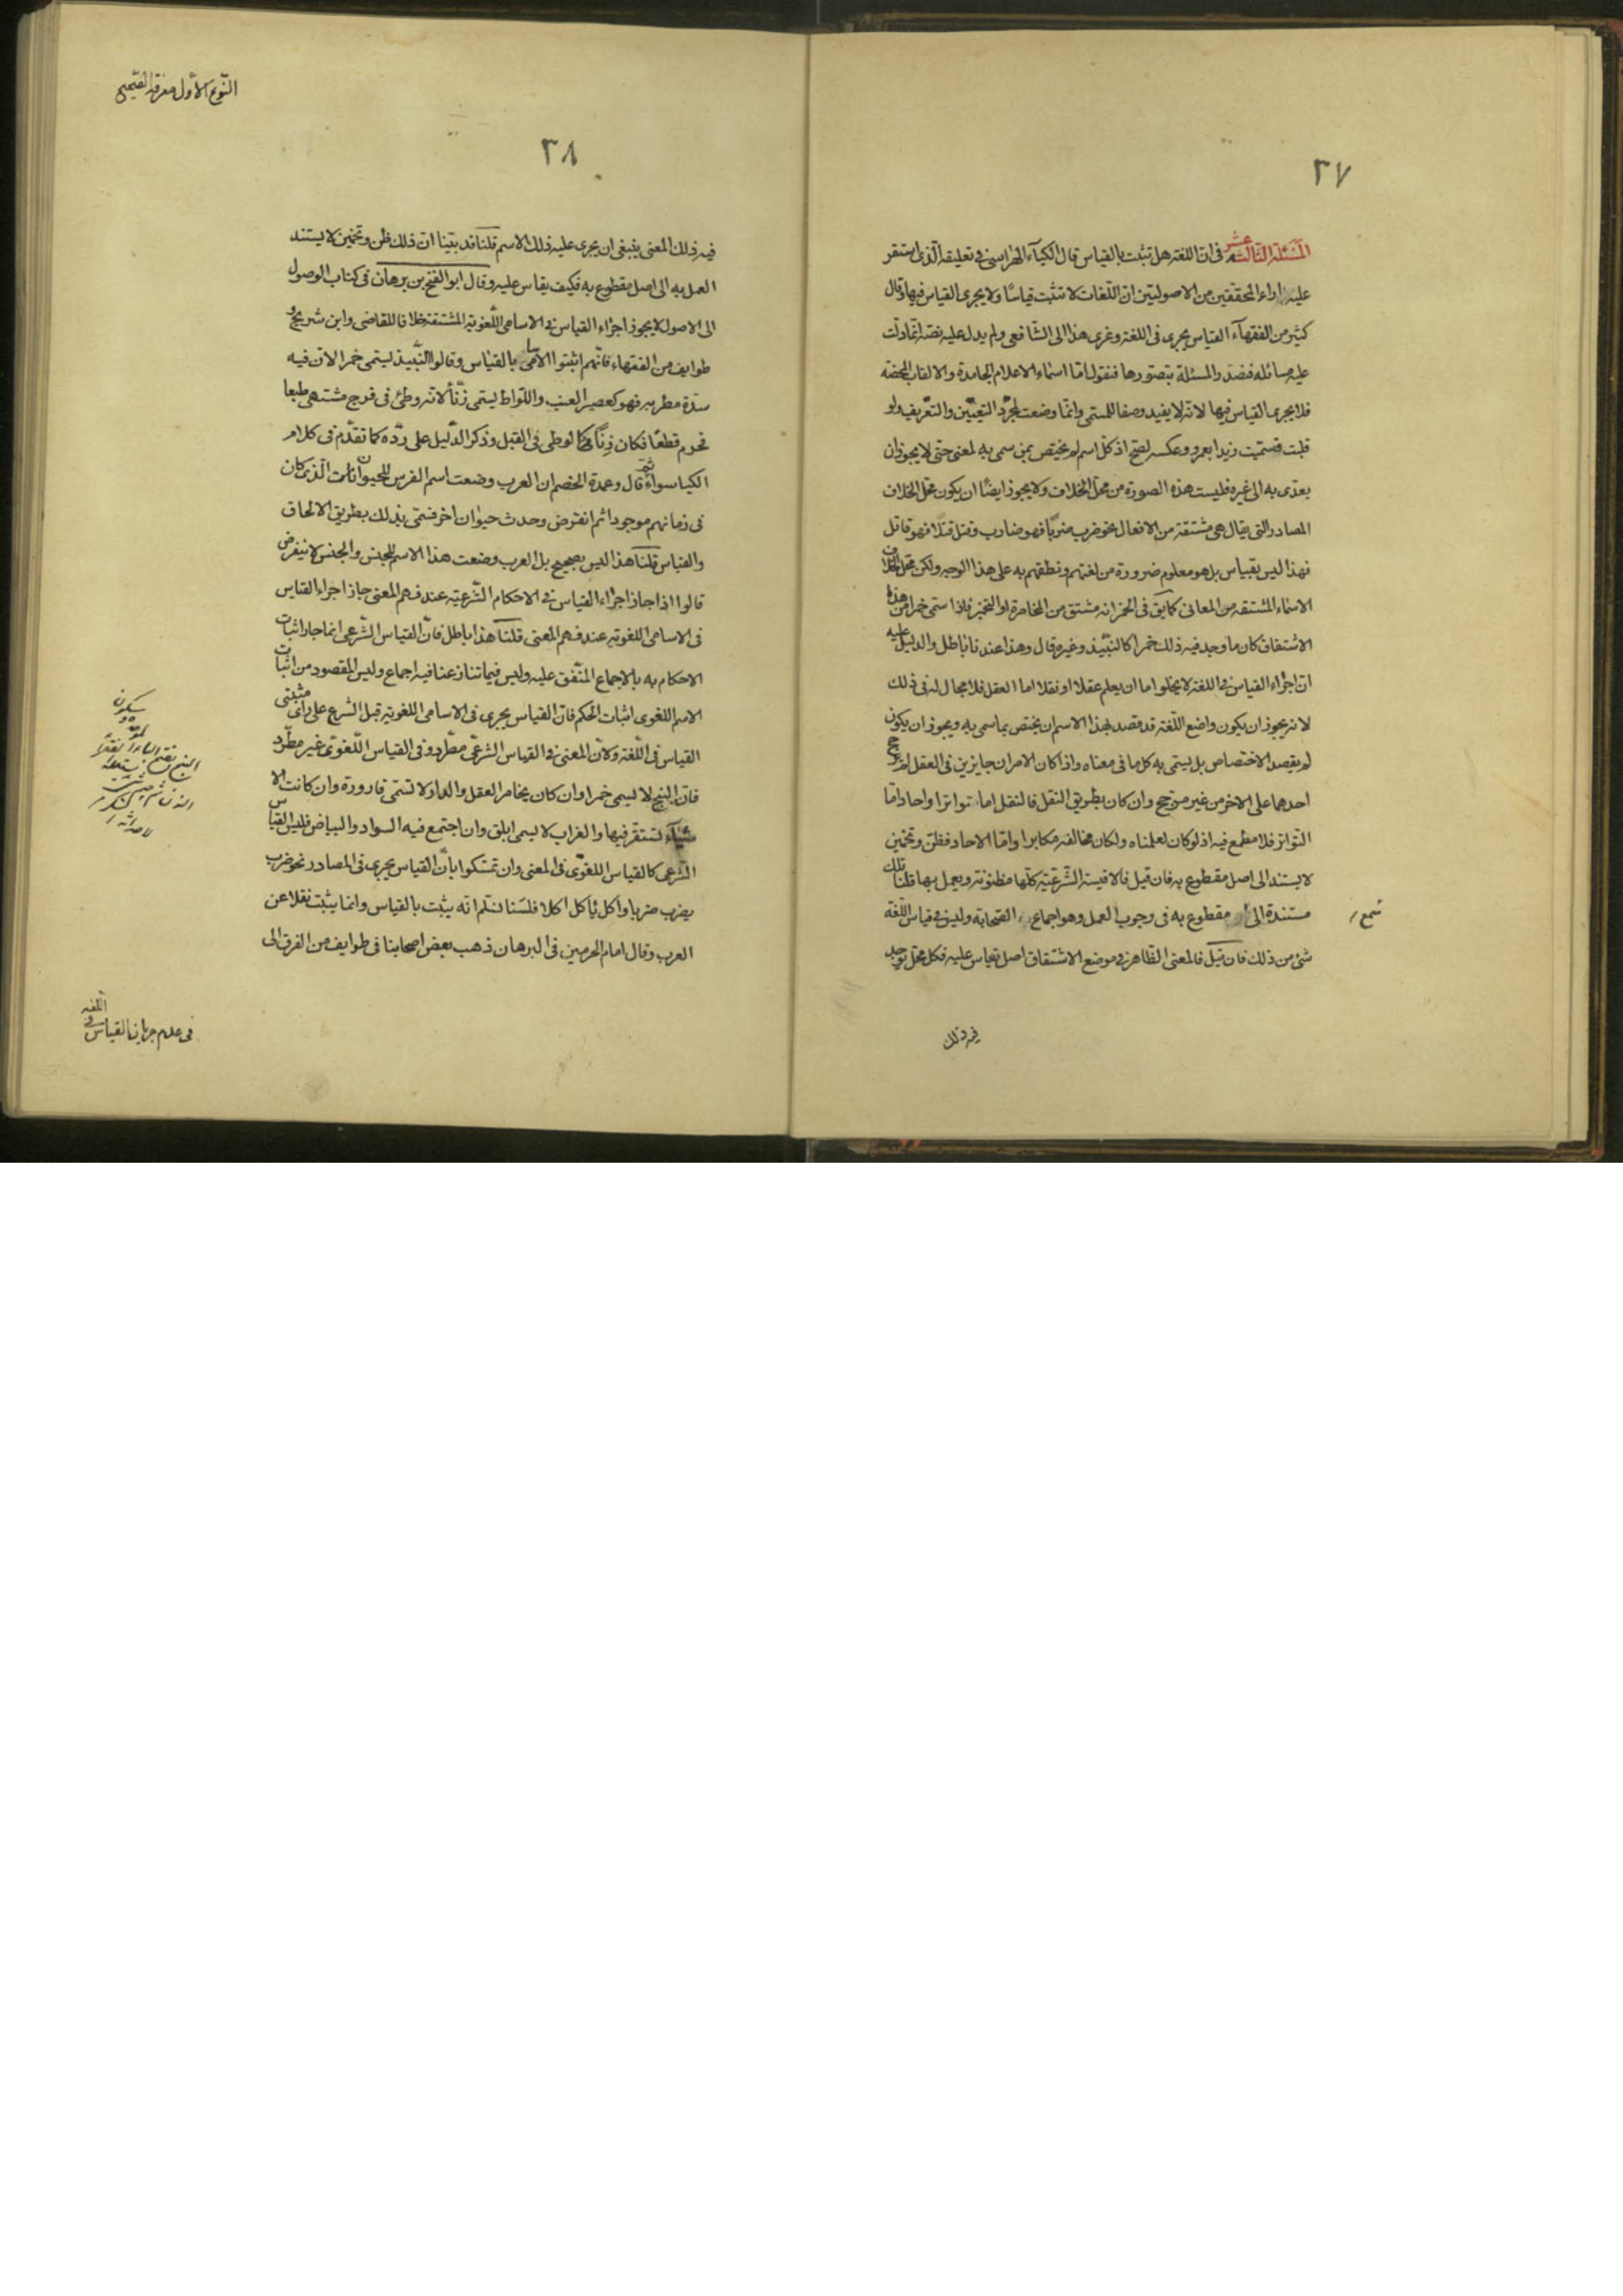 ٣٧
المسئلة الثالثة عشر فى ان اللغة هل تثبت بالقياس قال الكيآء الهراسى فى تعليقه الذى استقر
عليه اراء المحققين من الاصوليين ان اللغات لا تثبت قياسا ولا يجرى القياس فيها وقال
كثير من الفقهآء القياس يجرى فى اللغة وعزى هذا الى الشافعى ولم يدل عليه نصه انما دلت
عليه مسائله فنصدر المسئلة بتصورها فنقول اما اسماء الاعلام الجامدة والالقاب المحضة
فلا يجرى القياس فيها لانه لا يفيد وصفا للمسمى وانما وضعت لمجرد التعيين والتعريف ولو
قلبت فسميت زيدا بعمرو وعكسه لصح اذ كل اسم لم يختص بمن سمى به لمعنى حتى لا يجوز ان
يعدى به الى غيره فليست هذه الصورة من محل الخلاف ولا يجوز ايضا ان يكون محل الخلاف
المصادر التى يقال هى مشتقة من الافعال نحو ضرب ضربا فهو ضارب وقتل قتلا فهو قاتل
فهذا ليس بقياس بل هو معلوم ضرورة من لغتهم ونطقهم به على هذا الوجه ولكن محل الخلاف
الاسماء المشتقة من المعانى كما يق فى الخمر انه مشتق من المخامرة او التخمير فاذا سمى خمرا من هذه
الاشتقاق كان ما وجد فيه ذلك خمرا كالنبيذ وغيره قال وهذا عندنا باطل والدليل عليه
ان اجراء القياس فى اللغة لا يخلوا اما ان يعلم عقلا او نقلا اما العقل فلا مجال له فى ذلك
لانه يجوز ان يكون واضع اللغة قد قصد بهذا الاسم ان يختص بما سمى به ويجوز ان يكون
لم يقصد الاختصاص بل يسمى به كل ما فى معناه واذا كان الامران جايزين فى العقل لم يرجح
احدهما على الاخر من غير مرجح وان كان بطريق النقل فالنقل اما تواترا واحادا اما
التواتر فلا مطمع فيه اذ لو كان لعلمناه ولكان مخالفه مكابرا واما الاحاد فظن وتخمين
لا يستند الى اصل مقطوع به فان قيل فالاقيسة الشرعية كلها مظنونة ويعمل بها قلنا تلك
مستندة الى مقطوع به فى وجوب العمل وهو اجماع الصحابة وليس فى قياس اللغة
شئ من ذلك فان قيل فالمعنى الظاهر فى موضع الاشتقاق اصل يقاس عليه فكل محل يوجد
فيه ذلك
النوع الاول معرفة الصحيح
٣٨
فيه ذلك المعنى ينبغى ان يجرى عليه ذلك الاسم قلنا قد بينا ان ذلك ظن وتخمين لا يستند
العمل به الى اصل مقطوع به فكيف يقاس عليه وقال ابو الفتح بن برهان فى كتاب الوصول
الى الاصول لا يجوز اجراء القياس فى الاسامى اللغوية المشتقة خلافا للقاضى وابن شريح و
طوايف من الفقهاء فانهم اثبتوا الاسامى بالقياس وقالوا النبيذ ليسمى خمرا لان فيه
شدة مطربة فهو كعصير العنب واللواط يسمى زنأ لانه وطئ فى فرج مشتهى طبعا
محرم قطعا فكان زنا كالوطى فى القبل وذكر الدليل على رده كما تقدم فى كلام
الكيا سواء ثم قال وعمدة الخصم ان العرب وضعت اسم الفرس للحيوانات الذى كان
فى زمانهم موجودا ثم انقرض وحدث حيوان اخر فسمى بذلك بطريق الالحاق
والقياس قلنا هذا ليس بصحيح بل العرب وضعت هذا الاسم للجنس والجنس لا ينقرض
قالوا اذا جاز اجراء القياس فى الاحكام الشرعية عند فهم المعنى جاز اجراء القياس
فى الاسامى اللغوية عند فهم المعنى قلنا هذا باطل فان القياس الشرعى انما جاز اثبات
الاحكام به بالاجماع المتفق عليه وليس فيما تنازعنا فيه اجماع وليس المقصود من اثبات
الاسم اللغوى اثبات الحكم فان القياس يجرى فى الاسامى اللغوية قبل الشرع على رأى مثبتى
القياس فى اللغة ولان المعنى فى القياس الشرعى مطرد وفى القياس اللغوى غير مطرد
فان البنج لا ليسمى خمرا وان كان يخامر العقل والدار لا تسمى قارورة وان كانت الا
شيآء تستقر فيها والغراب لا يسمى ابلق وان اجتمع فيه السواد والبياض فليس القياس
الشرعى كالقياس اللغوى فى المعنى وان تمسكوا بان القياس يجرى فى المصادر نحو ضرب
يضرب ضربا واكل يأكل اكلا فلسنا نسلم انه يثبت بالقياس وانما يثبت نقلا عن
العرب وقال امام الحرمين فى البرهان ذهب بعض اصحابنا فى طوايف من الفرق الى
فى عدم جريان القياس فى اللغة